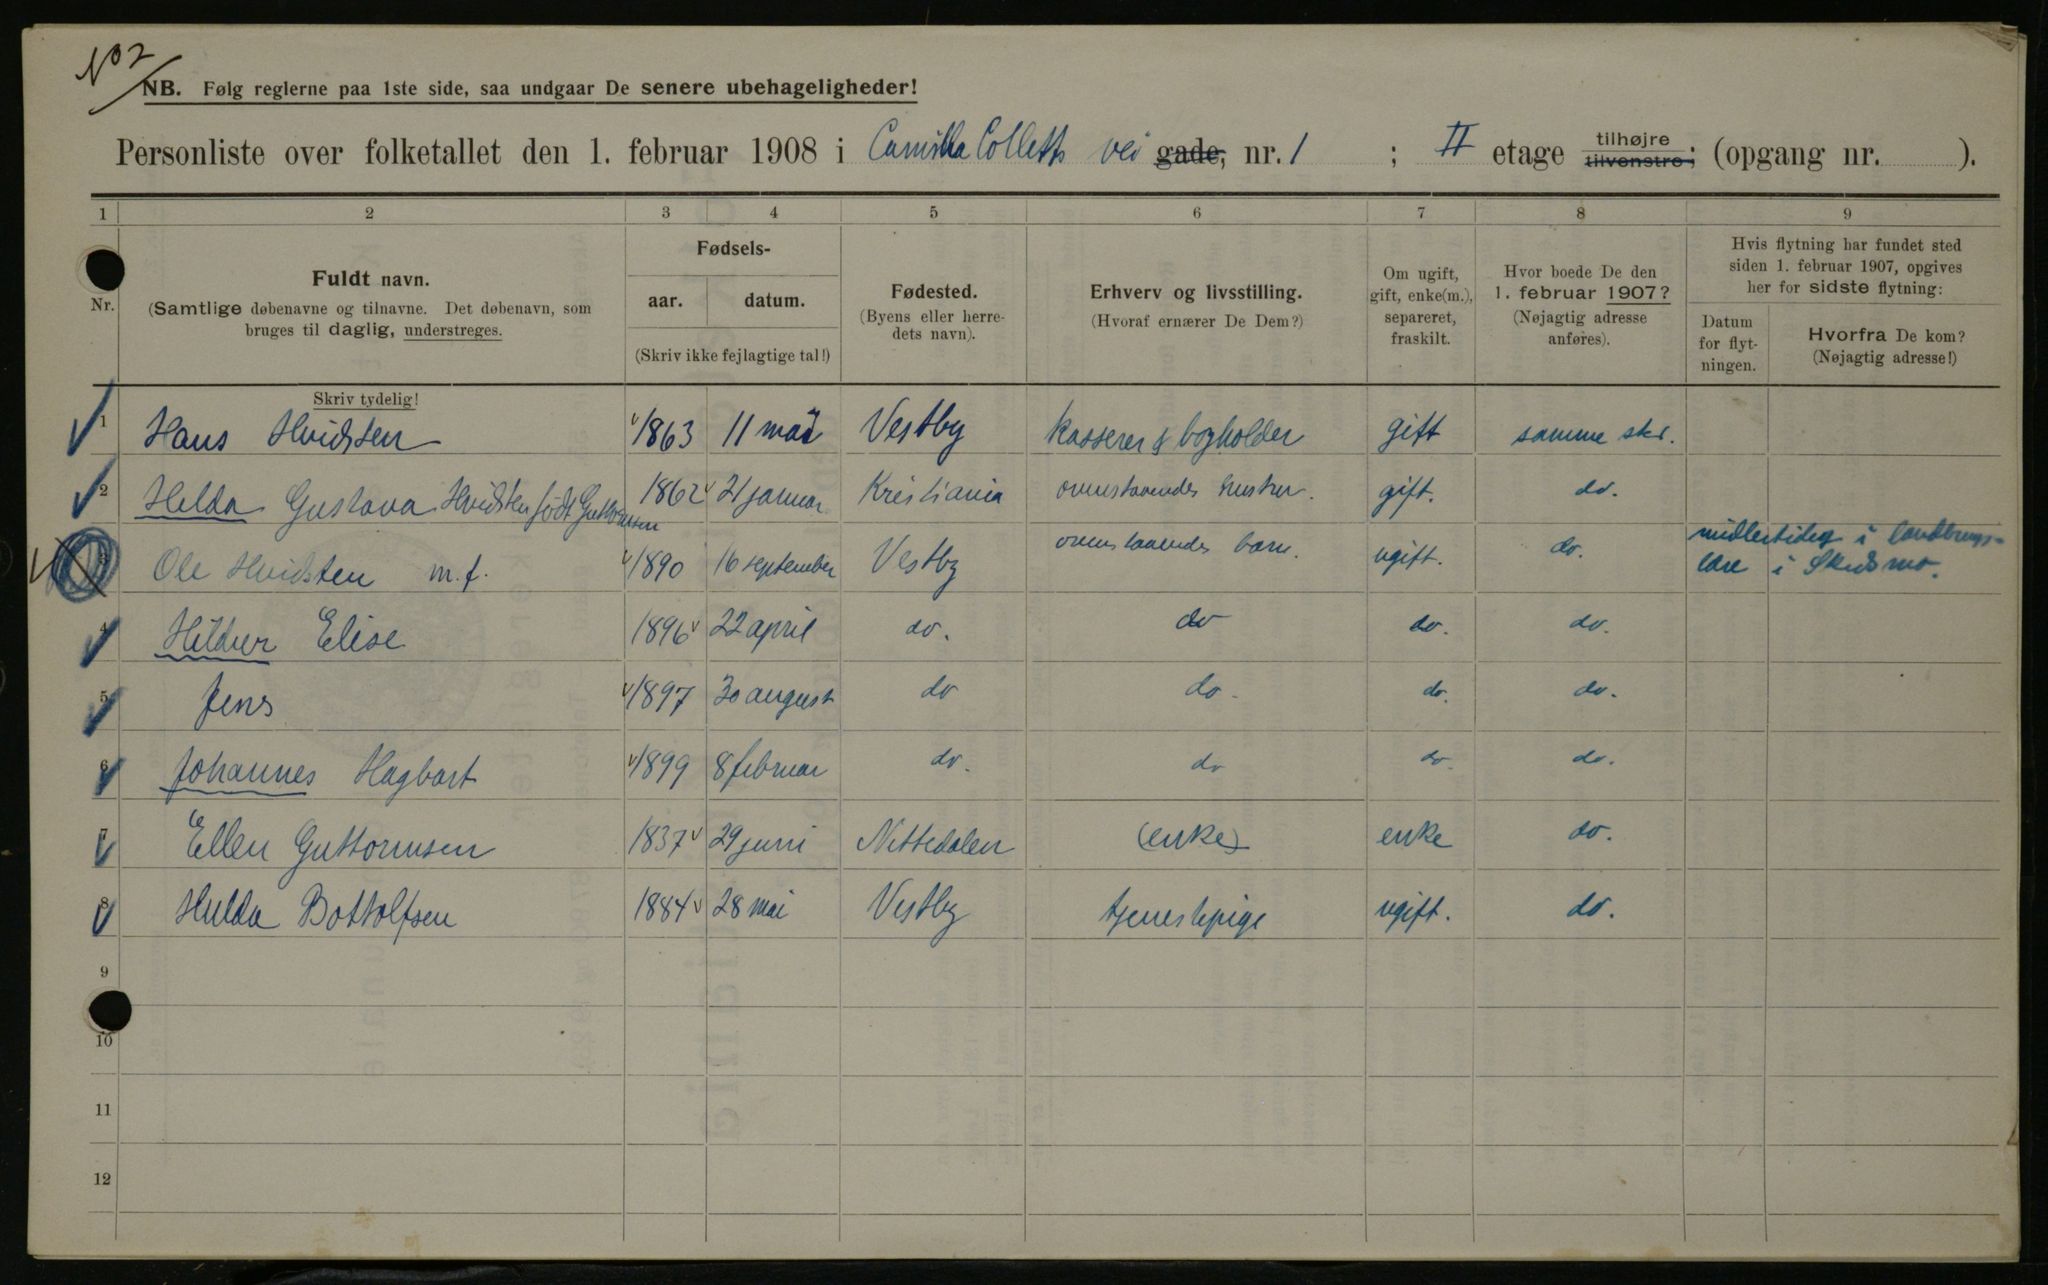 No 2
NB. Følg reglerne paa 1ste side, saa undgaar De senere ubehageligheder!
Personliste over folketallet den 1. februar 1908 i Camilla Colletts vei gade, nr. 1 ; II etage tilhøjre tilvenstre; (opgang nr. ).
1 2 3 4 5 6 7 8 9
Nr.
Fuldt navn.
(Samtlige døbenavne og tilnavne. Det døbenavn, som
bruges til daglig, understreges.
Skriv tydelig!
Fødsels-
aar. datum.
(Skriv ikke fejlagtige tal!)
Fødested.
(Byens eller herre-
dets navn).
Erhverv og livsstilling.
(Hvoraf ernærer De Dem?)
Om ugift,
gift, enke(m.),
separeret,
fraskilt.
Hvor boede De den
1. februar 1907?
(Nøjagtig adresse
anføres).
Hvis flytning har fundet sted
siden 1. februar 1907, opgives
her for sidste flytning:
Datum
for flyt-
ningen.
Hvorfra De kom?
(Nøjagtig adresse!)
1 Hans Hvidsten 1863 11 mai Vestby kasserer & bogholder gift samme sted.
2 Helda Gustava Hvidsten født Guttormsen 1862 21 januar Kristiania ovenstaaendes hustru. gift. do.
3 Ole Hvidsten m.f. 1890 16 september Vestby ovenstaaendes barn. ugift. do. midlertidig i landbrugs-
lære i Skedsmo.
4 Hildur Elise 1896 22 april do. do do. do.
5 Jens 1897 30 august do do. do. do.
6 Johannes Hagbart 1899 8 februar do. do do. do.
7 Ellen Guttormsen 1837 29 juni Nittedalen (enke) enke do.
8 Hulda Bottolfsen 1884 28 mai Vestby tjenestepige ugift. do.
9
10
11
12